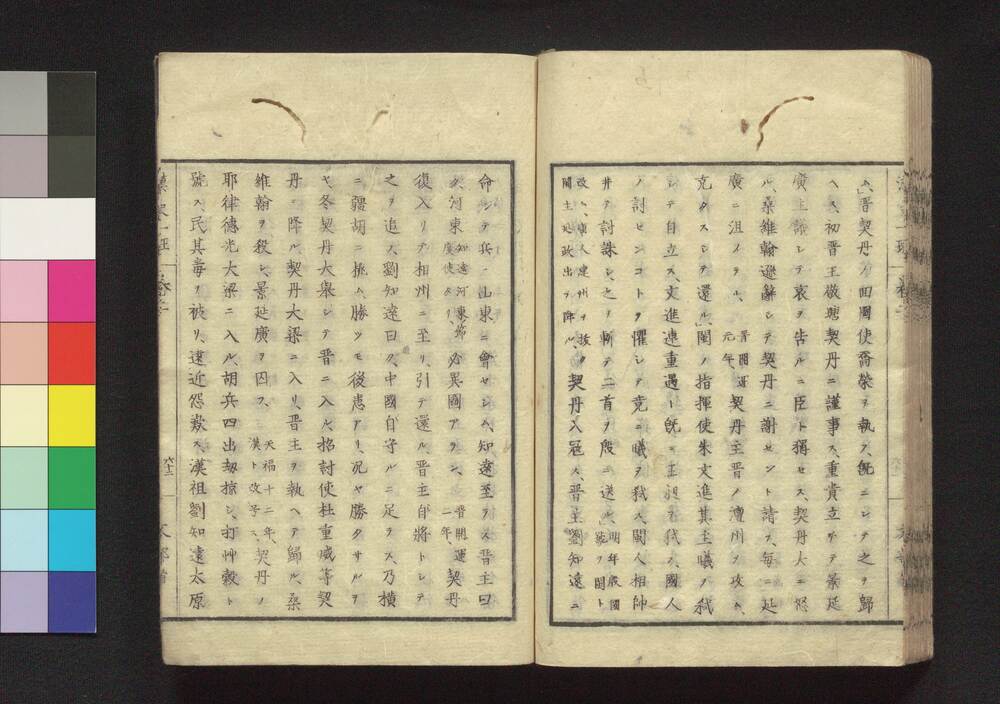 ム、晋契丹ノ回圖使喬榮ヲ執ヘ、既ニシテ之ヲ歸
ヘス、初晋王敬瑭契丹ニ謹事ス、重貴立ツテ景延
廣主議シテ哀ヲ告ルニ臣ト稱セス、契丹大ニ怒
ル、桑維翰遜辭シテ契丹ニ謝セント請フ、毎ニ延
廣ニ沮メラル、晋開運元年、契丹主晋ノ澶州ヲ攻ム、
克タスシテ還ル、閩ノ指揮使朱文進其主曦ヲ弑
シテ自立ス、文進連重遇ト既ニ王昶ヲ弑ス、國人
ノ討センコトヲ懼レテ竟ニ曦ヲ弑ス、閩人相帥
井テ討誅シ、之ヲ斬テ二首ヲ殷ニ送ル、明年殷國號ヲ閩ト
改ム、唐人建州ヲ拔ク閩主延政出テヽ降ル、契丹入冦ス、晋主劉知遠ニ
命シテ兵ヲ山東ニ會セシム、知遠至ラス晋主曰
ク、河東知遠河東節度使タリ、必異圖アラン、晋開運二年、契丹
復入リテ相州ニ至リ、引テ還ル、晋主自將トシテ
之ヲ追フ、劉知遠曰ク、中國自守ルニ足ラス、乃横
ニ彊胡ニ挑ム、勝ツモ後患アリ、况ヤ勝タサルヲ
ヤ、冬契丹大舉シテ晋ニ入ル、招討使杜重威等契
丹ニ降ル、契丹大梁ニ入リ、晋主ヲ執ヘテ歸ル、桑
維翰ヲ殺シ、景延廣ヲ囚フ、天福十二年、漢ト改号ス、契丹ノ
耶律德光大梁ニ入ル、胡兵四出劫掠シ、打艸穀ト
號ス、民其毒ヲ被リ、遠近怨歎ス、漢祖劉知遠太原
六十二